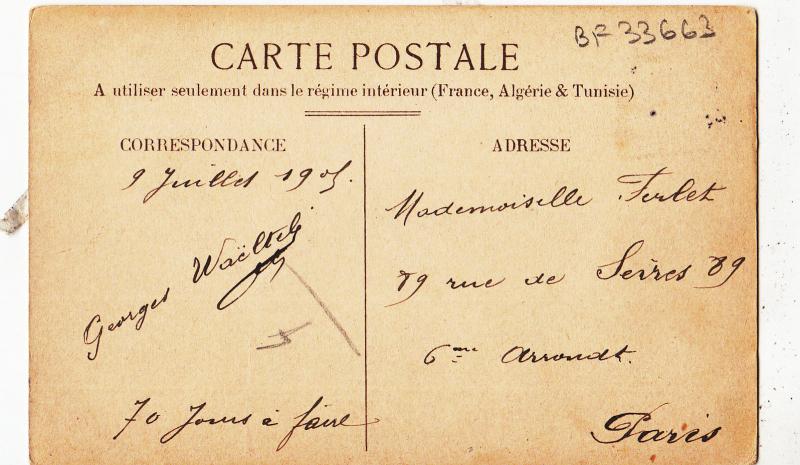 BF 33663
CARTE POSTALE
A utiliser seulement dans le régime intérieur (France, Algérie & Tunisie)
CORRESPONDANCE
9 Juillet 1905.
Georges Waëltelé
70 Jours à faire
ADRESSE
Mademoiselle Ferlet
89 rue de Sèvres 89
6me Arrondt.
Paris